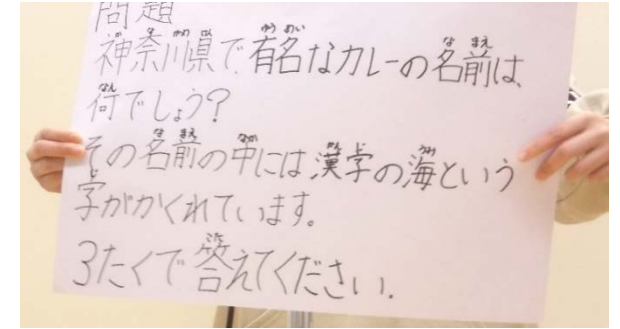 問題
神奈川県で有名なカレーの名前は、
何でしょう?
その名前の中には漢字の海という
字がかくれています。
3たくで答えてください.